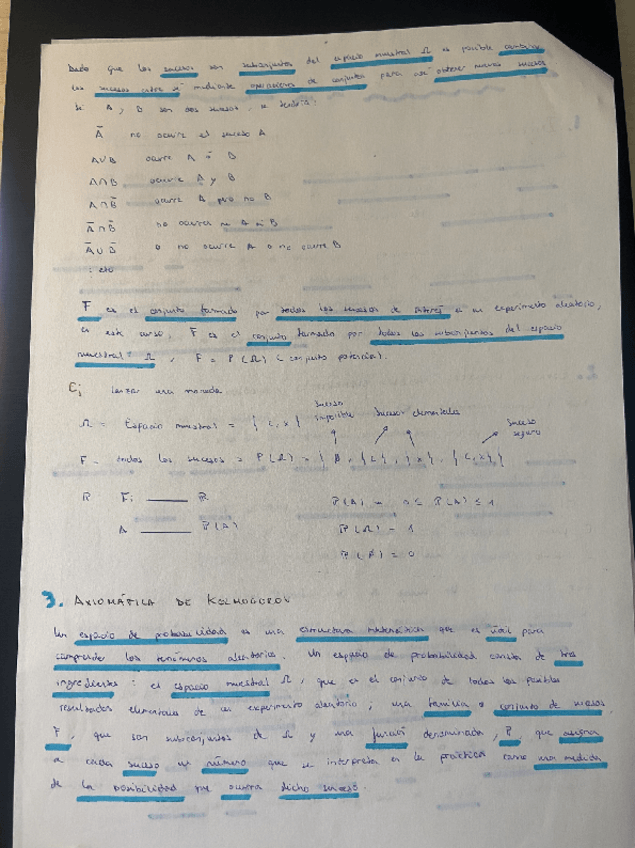 Dado que los sucesos son subconjuntos del espacio muestral Ω es posible combinar
los sucesos entre sí mediante operaciones de conjuntos para así obtener nuevos sucesos
Si A y B son dos sucesos, se tendría:
Ā no ocurre el suceso A
A∪B ocurre A o B
A∩B ocurre A y B
A∩B̄ ocurre A pero no B
Ā∩B̄ no ocurre ni A ni B
Ā∪B̄ o no ocurre A o no ocurre B
F es el conjunto formado por todos los sucesos de interés en un experimento aleatorio,
en este curso, F es el conjunto formado por todos los subconjuntos del espacio
muestral Ω, F = P(Ω) (conjunto potencia).
Ej lanzar una moneda
Ω = Espacio muestral = {C, X}
suceso imposible sucesos elementales suceso seguro
F = todos los sucesos = P(Ω) = {Ø, {C}, {X}, {C, X}}
P F: ——— R
P(A) 0 ≤ P(A) ≤ 1
A ——— P(A)
P(Ω) = 1
P(Ø) = 0
3. AXIOMÁTICA DE KOLMOGOROV
Un espacio de probabilidad es una estructura matemática que es útil para
comprender los fenómenos aleatorios. Un espacio de probabilidad consta de tres
ingredientes: el espacio muestral Ω, que es el conjunto de todos los posibles
resultados elementales de un experimento aleatorio; una familia o conjunto de sucesos,
F, que son subconjuntos de Ω y una función denominada, P, que asigna
a cada suceso un número que se interpreta en la práctica como una medida
de la posibilidad que ocurra dicho suceso.